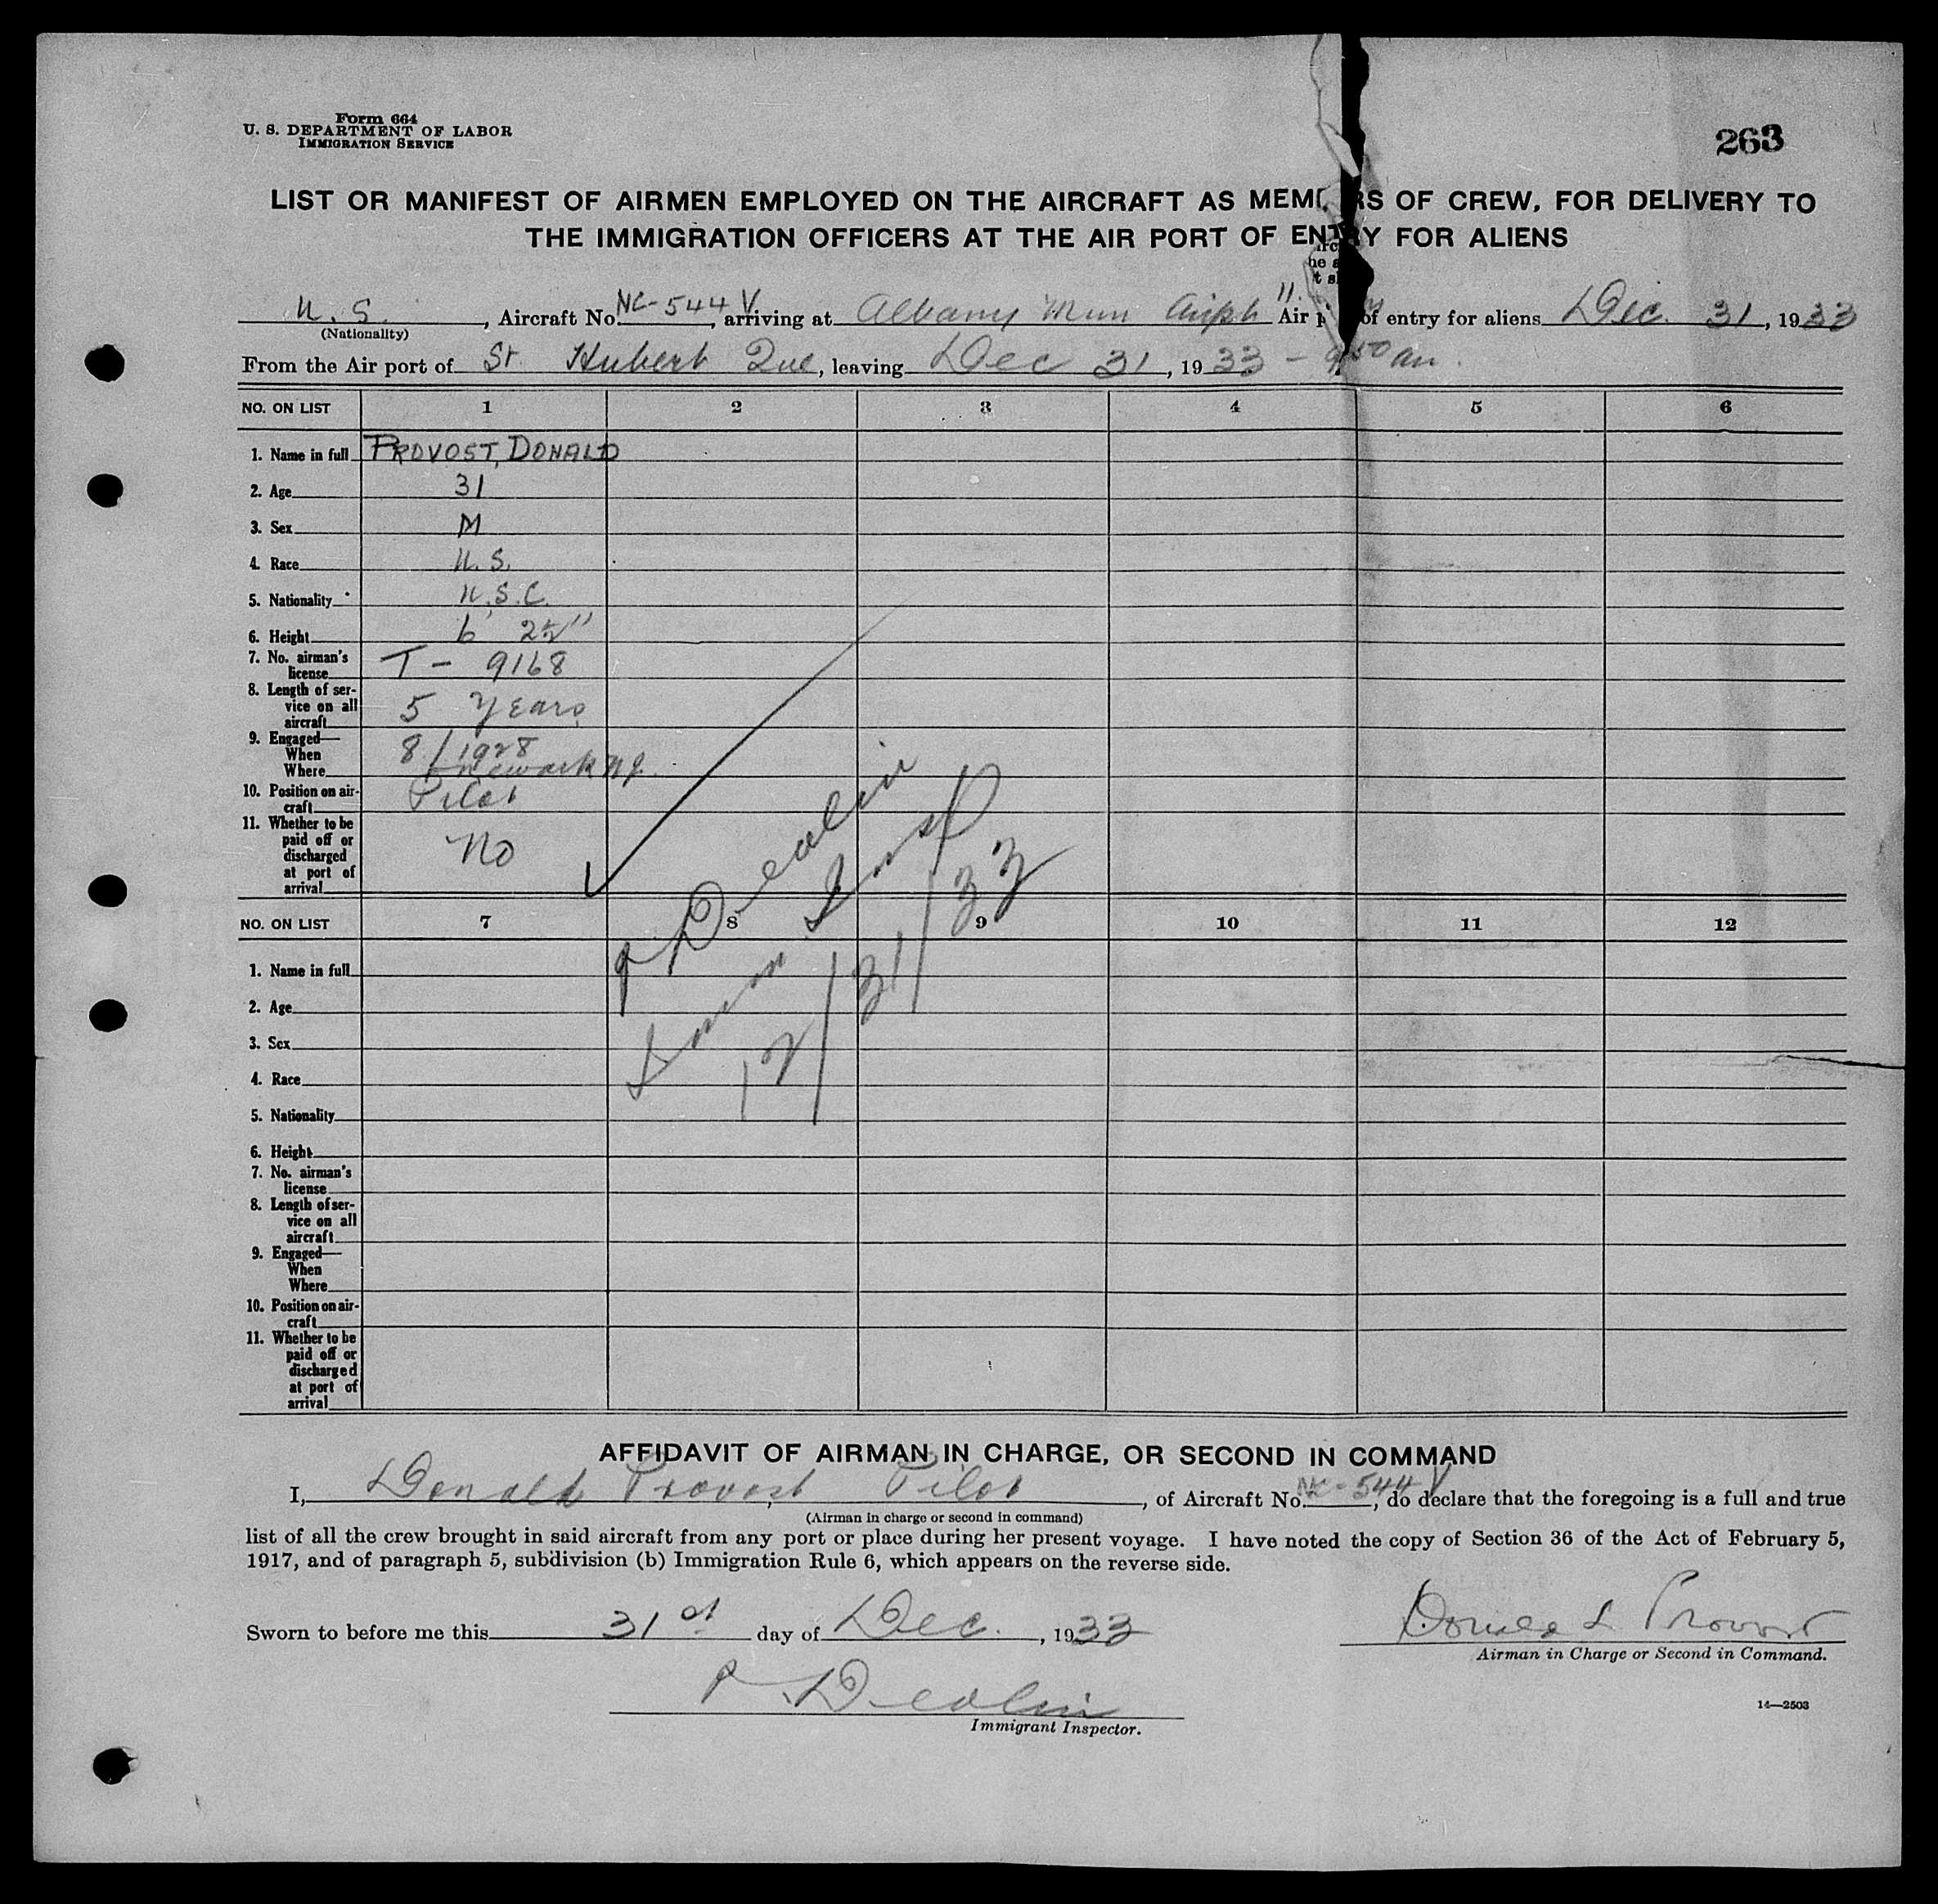 Form 664
U. S. DEPARTMENT OF LABOR
IMMIGRATION SERVICE
263
LIST OR MANIFEST OF AIRMEN EMPLOYED ON THE AIRCRAFT AS MEM RS OF CREW, FOR DELIVERY TO
THE IMMIGRATION OFFICERS AT THE AIR PORT OF ENTRY FOR ALIENS
U. S. , Aircraft No. NC-544 V, arriving at Albany Mun Airpt Air p of entry for aliens Dec. 31, 1933
(Nationality)
From the Air port of St Hubert Que, leaving Dec 31, 1933 - 9 50 am.
NO. ON LIST 1 2 3 4 5 6
1. Name in full PROVOST, DONALD
2. Age 31
3. Sex M
4. Race U. S.
5. Nationality U. S. C.
6. Height 6' 2½"
7. No. airman's
license T - 9168
8. Length of ser-
vice on all
aircraft 5 Years
9. Engaged—
When 8/1928
Where Newark NJ.
10. Position on air-
craft Pilot
11. Whether to be
paid off or
discharged
at port of
arrival No
P Devlin
Imm Insp
12/31/33
NO. ON LIST 7 8 9 10 11 12
1. Name in full
2. Age
3. Sex
4. Race
5. Nationality
6. Height
7. No. airman's
license
8. Length of ser-
vice on all
aircraft
9. Engaged—
When
Where
10. Position on air-
craft
11. Whether to be
paid off or
discharged
at port of
arrival
AFFIDAVIT OF AIRMAN IN CHARGE, OR SECOND IN COMMAND
I, Donald Provost, Pilot, of Aircraft No. NC-544 V, do declare that the foregoing is a full and true
(Airman in charge or second in command)
list of all the crew brought in said aircraft from any port or place during her present voyage. I have noted the copy of Section 36 of the Act of February 5,
1917, and of paragraph 5, subdivision (b) Immigration Rule 6, which appears on the reverse side.
Sworn to before me this 31st day of Dec., 1933
Donald L Provost
Airman in Charge or Second in Command.
P. Devlin
Immigrant Inspector.
14—2503